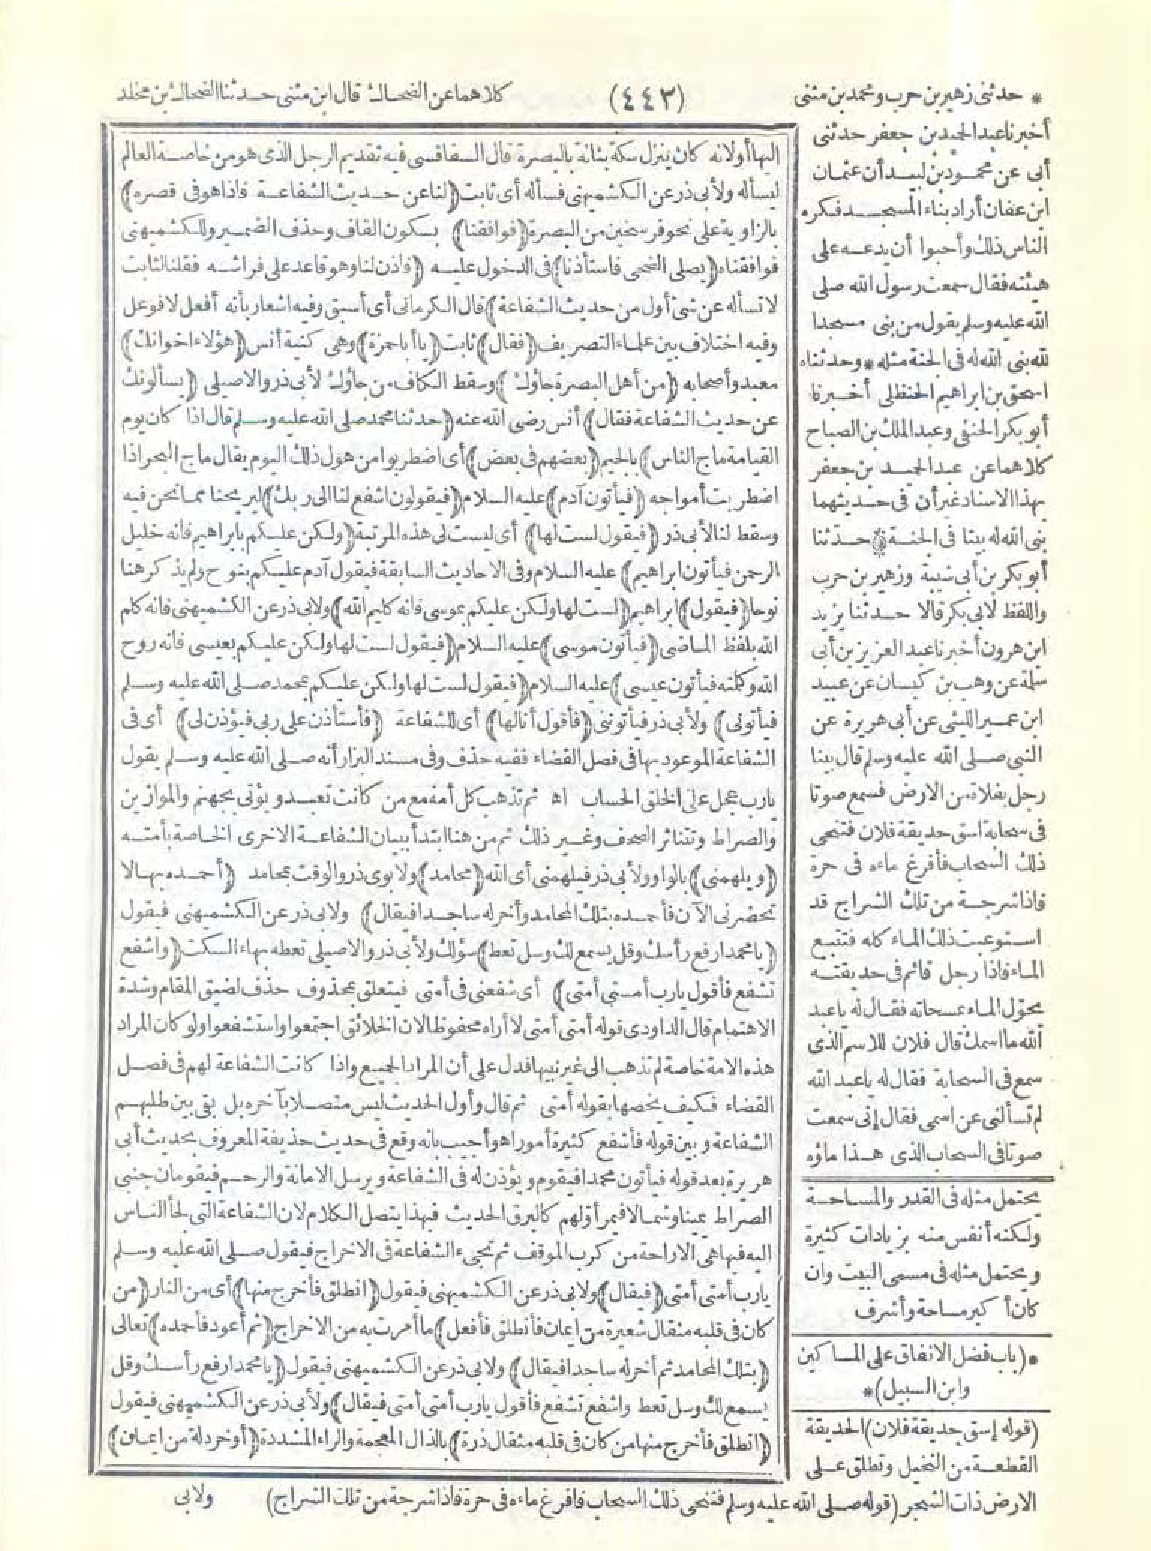 * حدثنى زهير بن حرب ومحمد بن مثنى (٤٤٢) كلاهما عن الضحاك قال ابن مثنى حدثنا الضحاك بن مخلد
أخبرنا عبد الحميد بن جعفر حدثنى
أبى عن محمود بن لبيد أن عثمان
ابن عفان أراد بناء المسجد فكره
الناس ذلك وأحبوا أن يدعه على
هيئته فقال سمعت رسول الله صلى
الله عليه وسلم يقول من بنى مسجدا
لله بنى الله له فى الجنة مثله * وحدثناه
اسحق بن ابراهيم الحنظلى أخبرنا
أبو بكر الحنفى وعبد الملك بن الصباح
كلاهما عن عبد الحميد بن جعفر
بهذا الاسناد غير أن فى حديثهما
بنى الله له بيتا فى الجنة * حدثنا
أبو بكر بن أبى شيبة وزهير بن حرب
واللفظ لابى بكر قالا حدثنا يزيد
ابن هرون أخبرنا عبد العزيز بن أبى
سلمة عن وهب بن كيسان عن عبيد
ابن عمير الليثى عن أبى هريرة عن
النبى صلى الله عليه وسلم قال بينا
رجل بفلاة من الارض فسمع صوتا
فى سحابة اسق حديقة فلان فتنحى
ذلك السحاب فأفرغ ماءه فى حرة
فاذا شرجة من تلك الشراج قد
استوعبت ذلك الماء كله فتتبع
الماء فاذا رجل قائم فى حديقته
يحول الماء بمسحاته فقال له يا عبد
الله ما اسمك قال فلان للاسم الذى
سمع فى السحابة فقال له يا عبد الله
لم تسألنى عن اسمى فقال إنى سمعت
صوتا فى السحاب الذى هذا ماؤه
يحتمل مثله فى القدر والمساحة
ولكنه أنفس منه بزيادات كثيرة
ويحتمل مثله فى مسمى البيت وان
كان أكبر مساحة وأشرف
*(باب فضل الانفاق على المساكين
وابن السبيل)*
(قوله إسق حديقة فلان) الحديقة
القطعة من النخيل وتطلق على
الارض ذات الشجر (قوله صلى الله عليه وسلم فتنحى ذلك السحاب فافرغ ماءه فى حرة فاذا شرجة من تلك الشراج)
اليها أو لانه كان ينزل سكة بنانة بالبصرة قال السفاقسى فيه تقديم الرجل الذى هو من خاصة العالم
ليسأله ولأبى ذر عن الكشميهنى فسأله أى ثابت (لنا عن حديث الشفاعة فاذا هو فى قصره)
بالزاوية على نحو فرسخين من البصرة (فوافقنا) بسكون القاف وحذف الضمير وللكشميهنى
فوافقناه (يصلى الضحى فاستأذنا) فى الدخول عليه (فأذن لنا وهو قاعد على فراشه فقلنا لثابت
لا تسأله عن شئ أول من حديث الشفاعة) قال الكرمانى أى أسبق وفيه اشعار بأنه أفعل لا فوعل
وفيه اختلاف بين علماء التصريف (فقال) ثابت (يا أبا حمزة) وهى كنية أنس (هؤلاء اخوانك)
معبد وأصحابه (من أهل البصرة جاؤك) وسقط الكاف من جاؤك لأبى ذر والاصيلى (يسألونك
عن حديث الشفاعة فقال) أنس رضى الله عنه (حدثنا محمد صلى الله عليه وسلم قال اذا كان يوم
القيامة ماج الناس) بالجيم (بعضهم فى بعض) أى اضطربوا من هول ذلك اليوم يقال ماج البحر اذا
اضطربت أمواجه (فيأتون آدم) عليه السلام (فيقولون اشفع لنا الى ربك) ليريحنا مما نحن فيه
وسقط لنا لأبى ذر (فيقول لست لها) أى ليست لى هذه المرتبة (ولكن عليكم بابراهيم فانه خليل
الرحمن فيأتون ابراهيم) عليه السلام وفى الاحاديث السابقة فيقول آدم عليكم بنوح ولم يذكر هنا
نوحا (فيقول) ابراهيم (لست لها ولكن عليكم بموسى فانه كليم الله) ولابى ذر عن الكشميهنى فانه كلم
الله بلفظ الماضى (فيأتون موسى) عليه السلام (فيقول لست لها ولكن عليكم بعيسى فانه روح
الله وكلمته فيأتون عيسى) عليه السلام (فيقول لست لها ولكن عليكم بمحمد صلى الله عليه وسلم
فيأتونى) ولأبى ذر فيأتوننى (فأقول أنا لها) أى للشفاعة (فأستأذن على ربى فيؤذن لى) أى فى
الشفاعة الموعود بها فى فصل القضاء ففيه حذف وفى مسند البزار أنه صلى الله عليه وسلم يقول
يا رب عجل على الخلق الحساب اه ثم تذهب كل أمة مع من كانت تعبد ويؤتى بجهنم والموازين
والصراط وتتناثر الصحف وغير ذلك ثم من هنا ابتدأ ببيان الشفاعة الاخرى الخاصة بأمته
(ويلهمنى) بالواو ولأبى ذر فيلهمنى أى الله (محامد) ولابوى ذر والوقت بمحامد (أحمده بها لا
تحضرنى الآن فأحمده بتلك المحامد وأخر له ساجدا فيقال) ولابى ذر عن الكشميهنى فيقول
(يا محمد ارفع رأسك وقل يسمع لك وسل تعط) سؤلك ولأبى ذر والاصيلى تعطه بهاء السكت (واشفع
تشفع فأقول يا رب أمتى أمتى) أى شفعنى فى أمتى فيتعلق بمحذوف حذف لضيق المقام وشدة
الاهتمام قال الداودى قوله أمتى أمتى لا أراه محفوظا لان الخلائق اجتمعوا واستشفعوا ولو كان المراد
هذه الامة خاصة لم تذهب الى غير نبيها فدل على أن المراد الجميع واذا كانت الشفاعة لهم فى فصل
القضاء فكيف يخصها بقوله أمتى ثم قال وأول الحديث ليس متصلا بآخره بل بقى بين طلبهم
الشفاعة وبين قوله فأشفع كثيرة أمور اهو أجيب بانه وقع فى حديث حذيفة المعروف بحديث أبى
هريرة بعد قوله فيأتون محمدا فيقوم ويؤذن له فى الشفاعة ويرسل الامانة والرحم فيقومان جنبى
الصراط يمينا وشمالا فيمر أولهم كالبرق الحديث فبهذا يتصل الكلام لان الشفاعة التى لجأ الناس
اليه فيها هى الاراحة من كرب الموقف ثم تجىء الشفاعة فى الاخراج فيقول صلى الله عليه وسلم
يا رب أمتى أمتى (فيقال) ولابى ذر عن الكشميهنى فيقول (انطلق فأخرج منها) أى من النار (من
كان فى قلبه مثقال شعيرة من ايمان فأنطلق فأفعل) ما أمرت به من الاخراج (ثم أعود فأحمده) تعالى
(بتلك المحامد ثم أخر له ساجدا فيقال) ولابى ذر عن الكشميهنى فيقول (يا محمد ارفع رأسك وقل
يسمع لك وسل تعط واشفع تشفع فأقول يا رب أمتى أمتى فيقال) ولأبى ذر عن الكشميهنى فيقول
(انطلق فأخرج منها من كان فى قلبه مثقال ذرة) بالذال المعجمة والراء المشددة (أو خردلة من ايمان)
ولابى